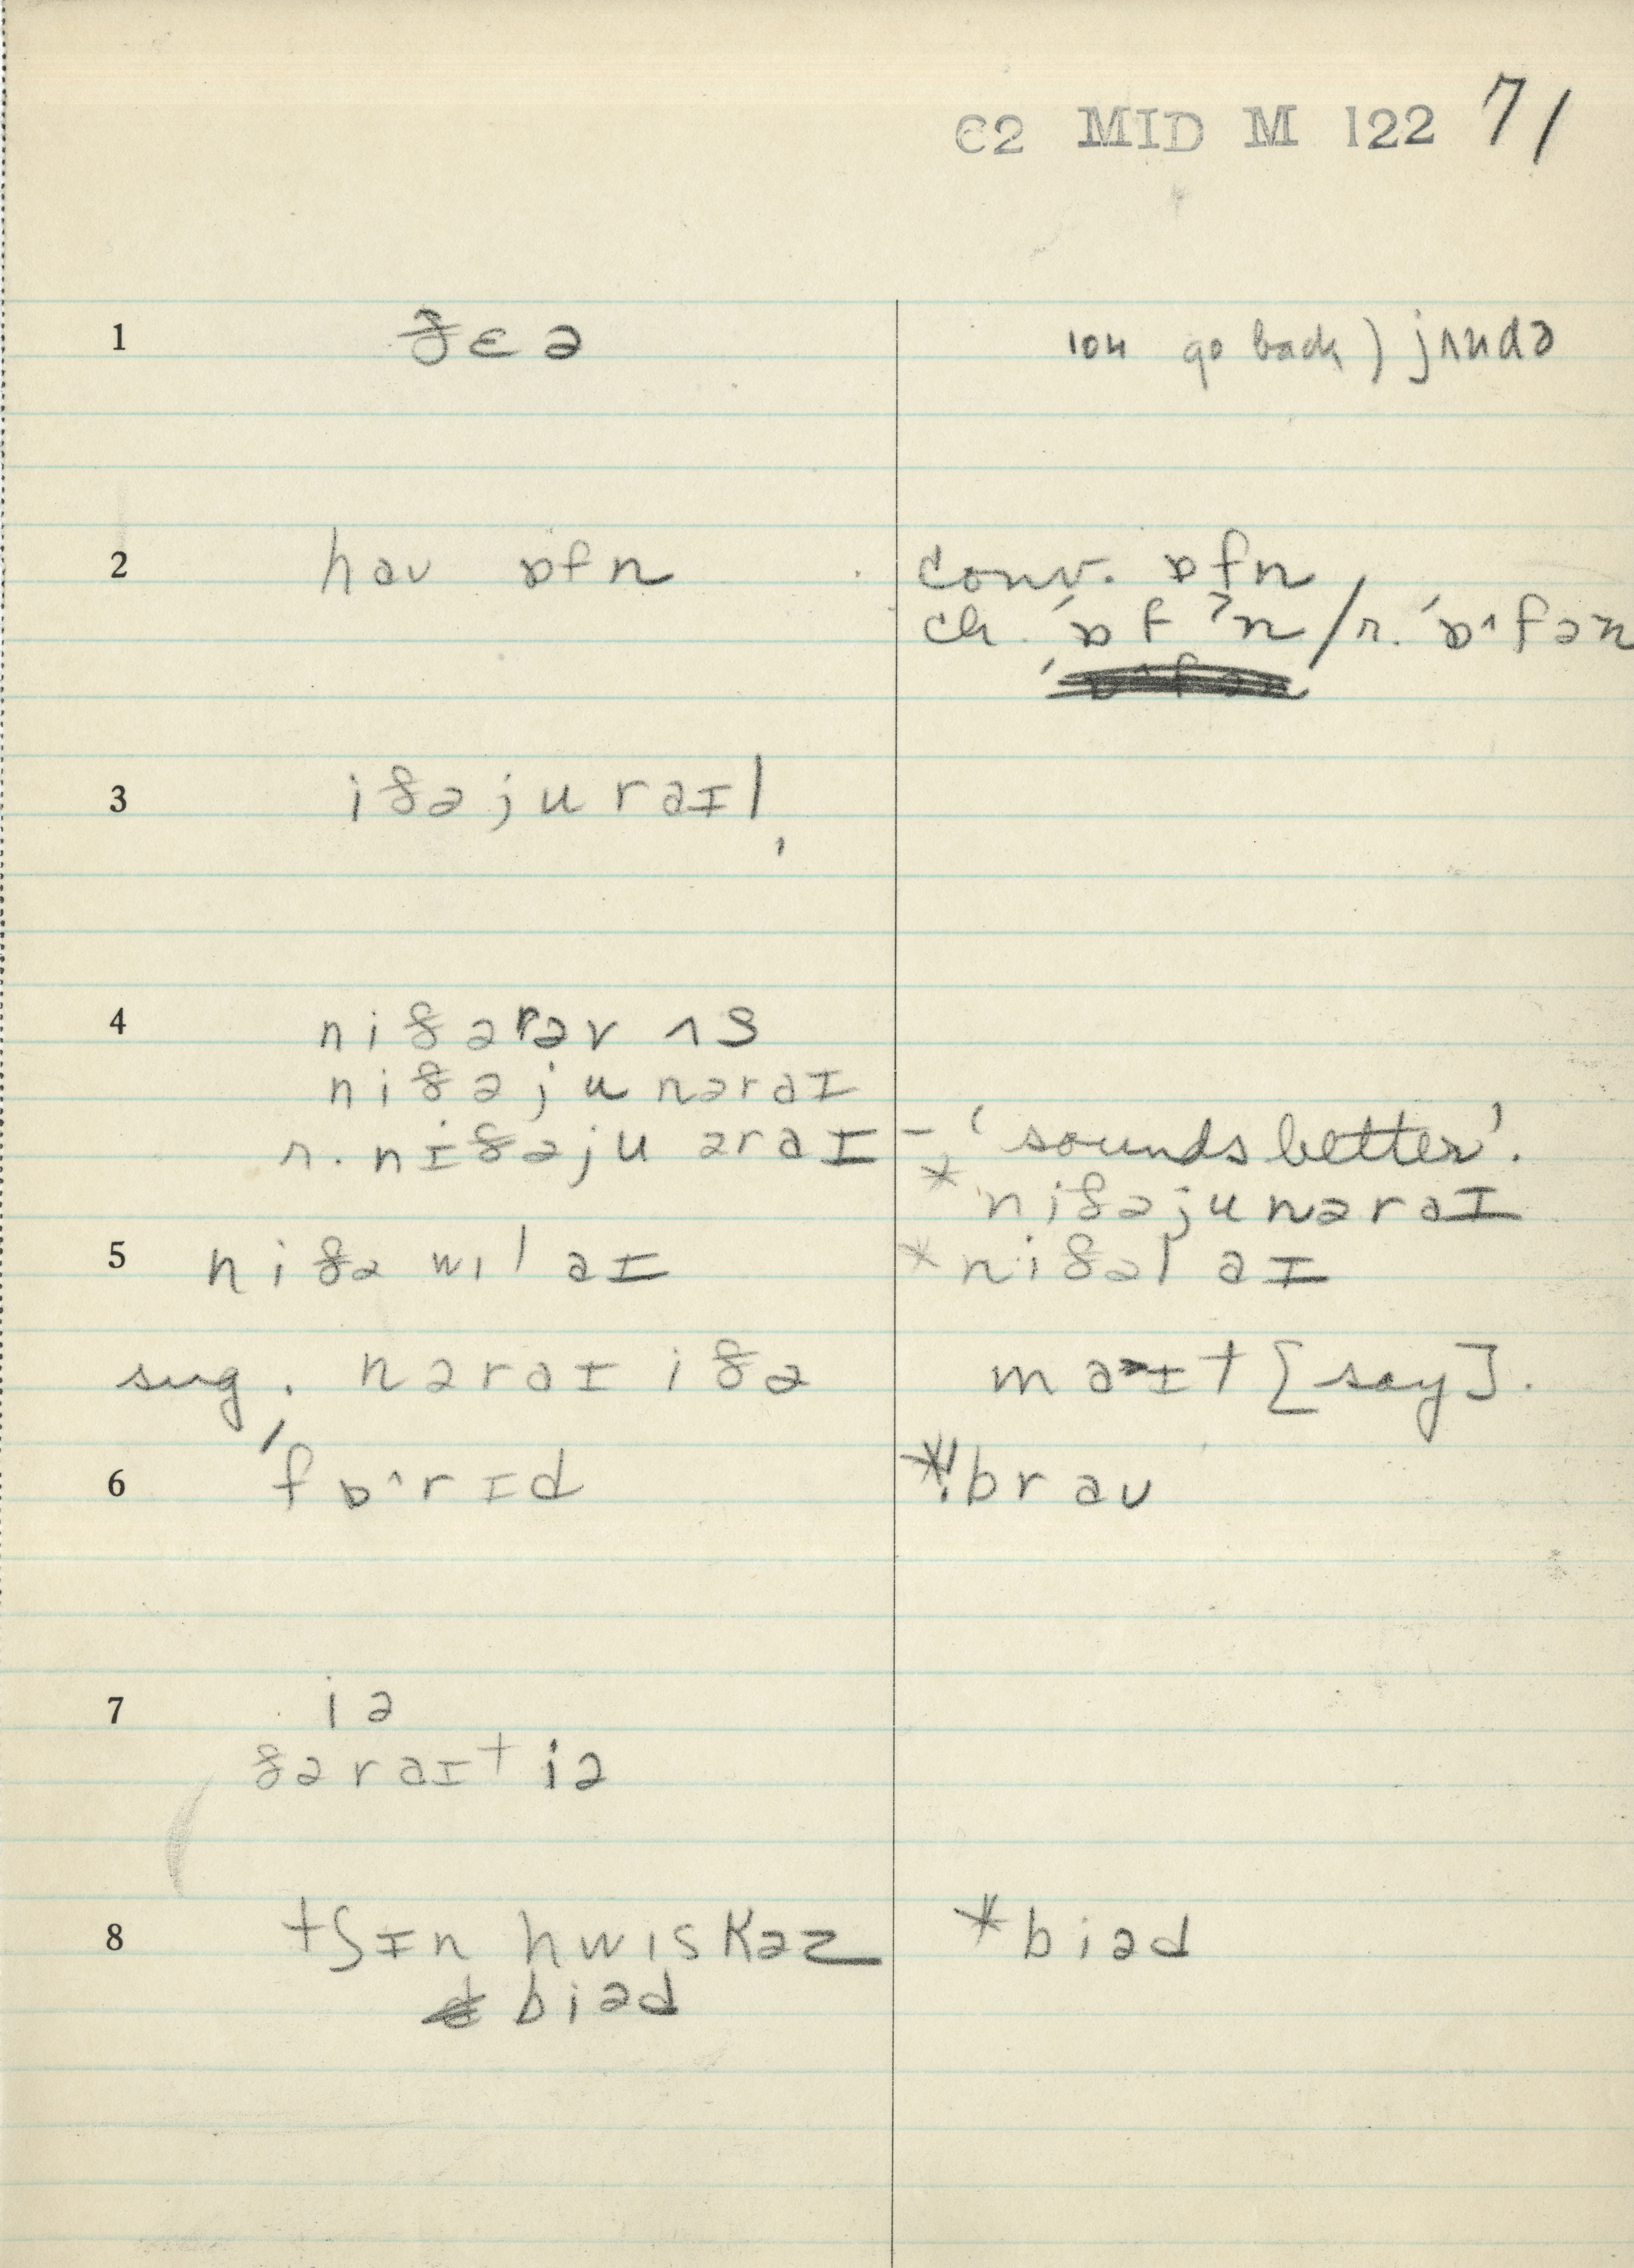 C2 MID M 122 71
1 ðɛə
104 go back) jʌndə
2 haʊ ɒfn
conv. ɒfn
ch. ˈɒfˀn / r. ˈɒˑfən
3 iðə ju raɪ|,
4 niðərəv ʌs
niðə ju nəraɪ
r. nɪðə ju əraɪ – 'sounds better'.
* niðə ju nəraɪ
5 niðə wɪl aɪ
* niðəl aɪ
sug. nəraɪ iðə
maɪt [say].
6 ˈfɒˑrɪd
braʊ
7 iə
ðəraɪt iə
8 tʃɪn hwɪskəz
biəd
* biəd